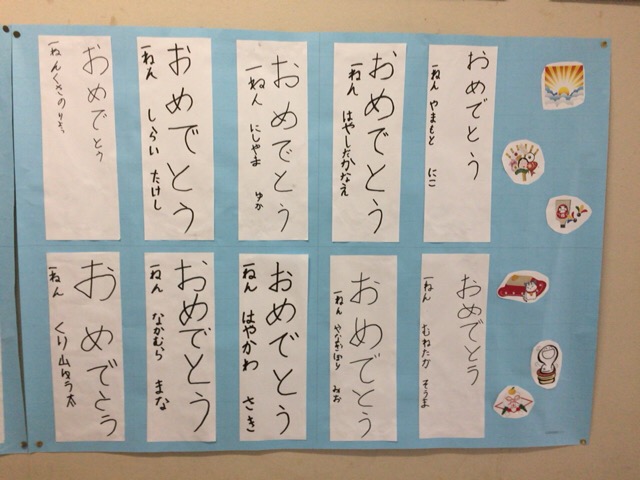 おめでとう
一ねん やまもと にこ
おめでとう
一ねん はやしだかなえ
おめでとう
一ねん にしやま ゆか
おめでとう
一ねん しらい たけし
おめでとう
一ねんくさのりさ
おめでとう
一ねん むねたか そうま
おめでとう
一ねん やなぎぼり みお
おめでとう
一ねん はやかわ さき
おめでとう
一ねん なかむら まな
おめでとう
一ねん くり山 太